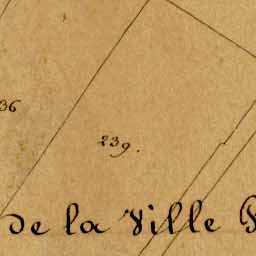 36
239.
de la Ville